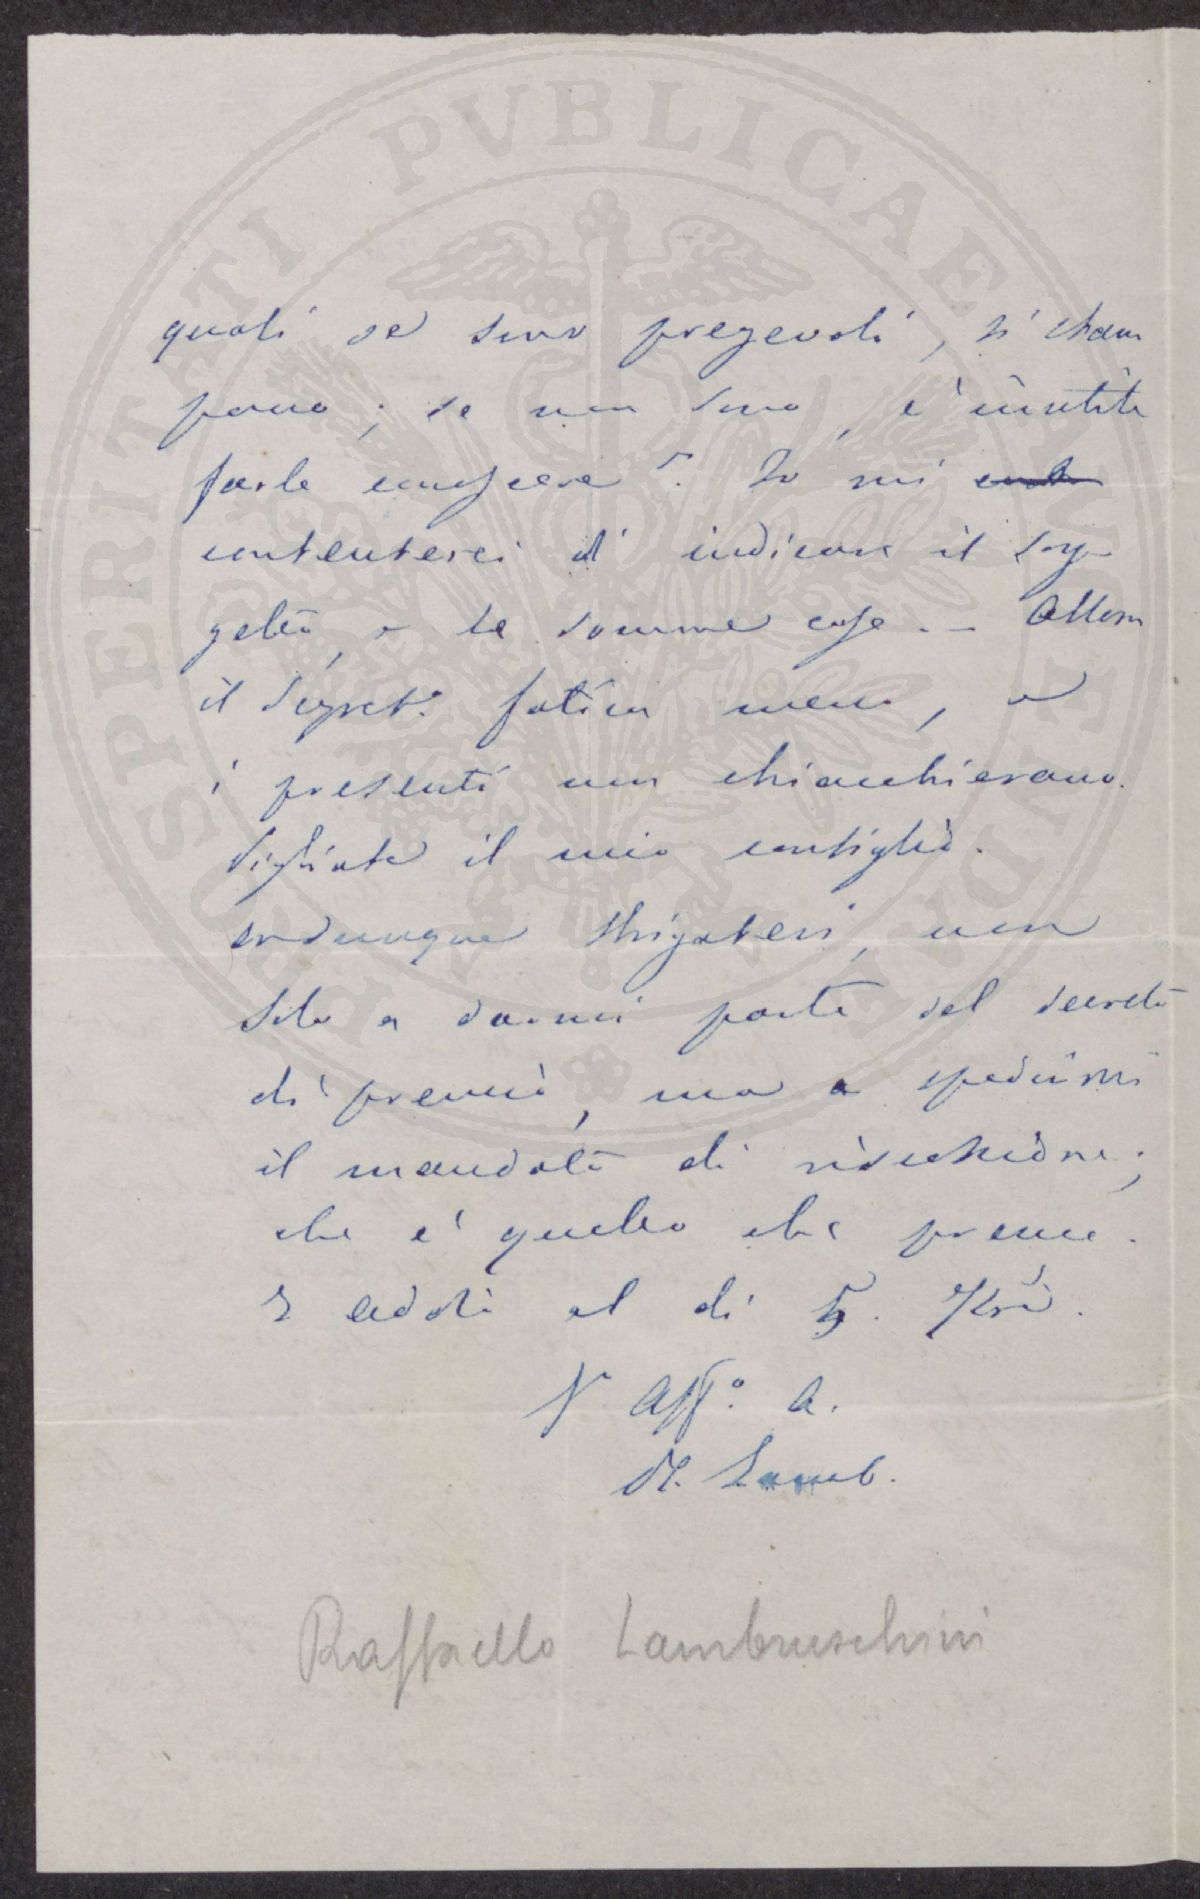 PROSPERITATI PVBLICAE
quali se sono pregevoli, si stam
pano; se non sono, è inutile
farle conoscere? Io mi
contenterei d' indicare il sog-
getto, e le somme cose. — Allora
il Segret.º fatica meno, e
i presenti non chiacchierano.
Pigliate il mio consiglio.
Ordunque sbrigatevi, non
solo a darmi parte del decreto
di premio, ma a spedirmi
il mandato di riscossione;
che è quello che preme.
addì al dì 5. 7bre.
V. Aff.º A.
R. Lamb.
Raffaello Lambruschini